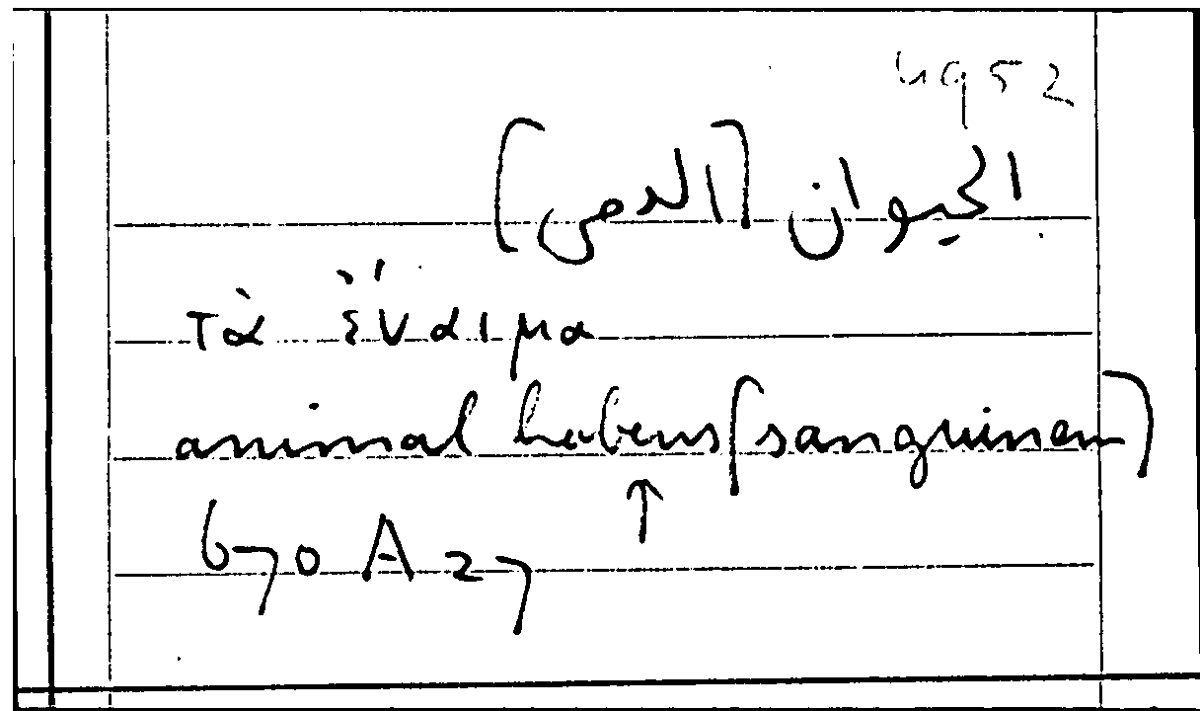 4952
الحيوان [الدمى]
τὰ ἔναιμα
animal habens [sanguinem]
↑
670 A 27